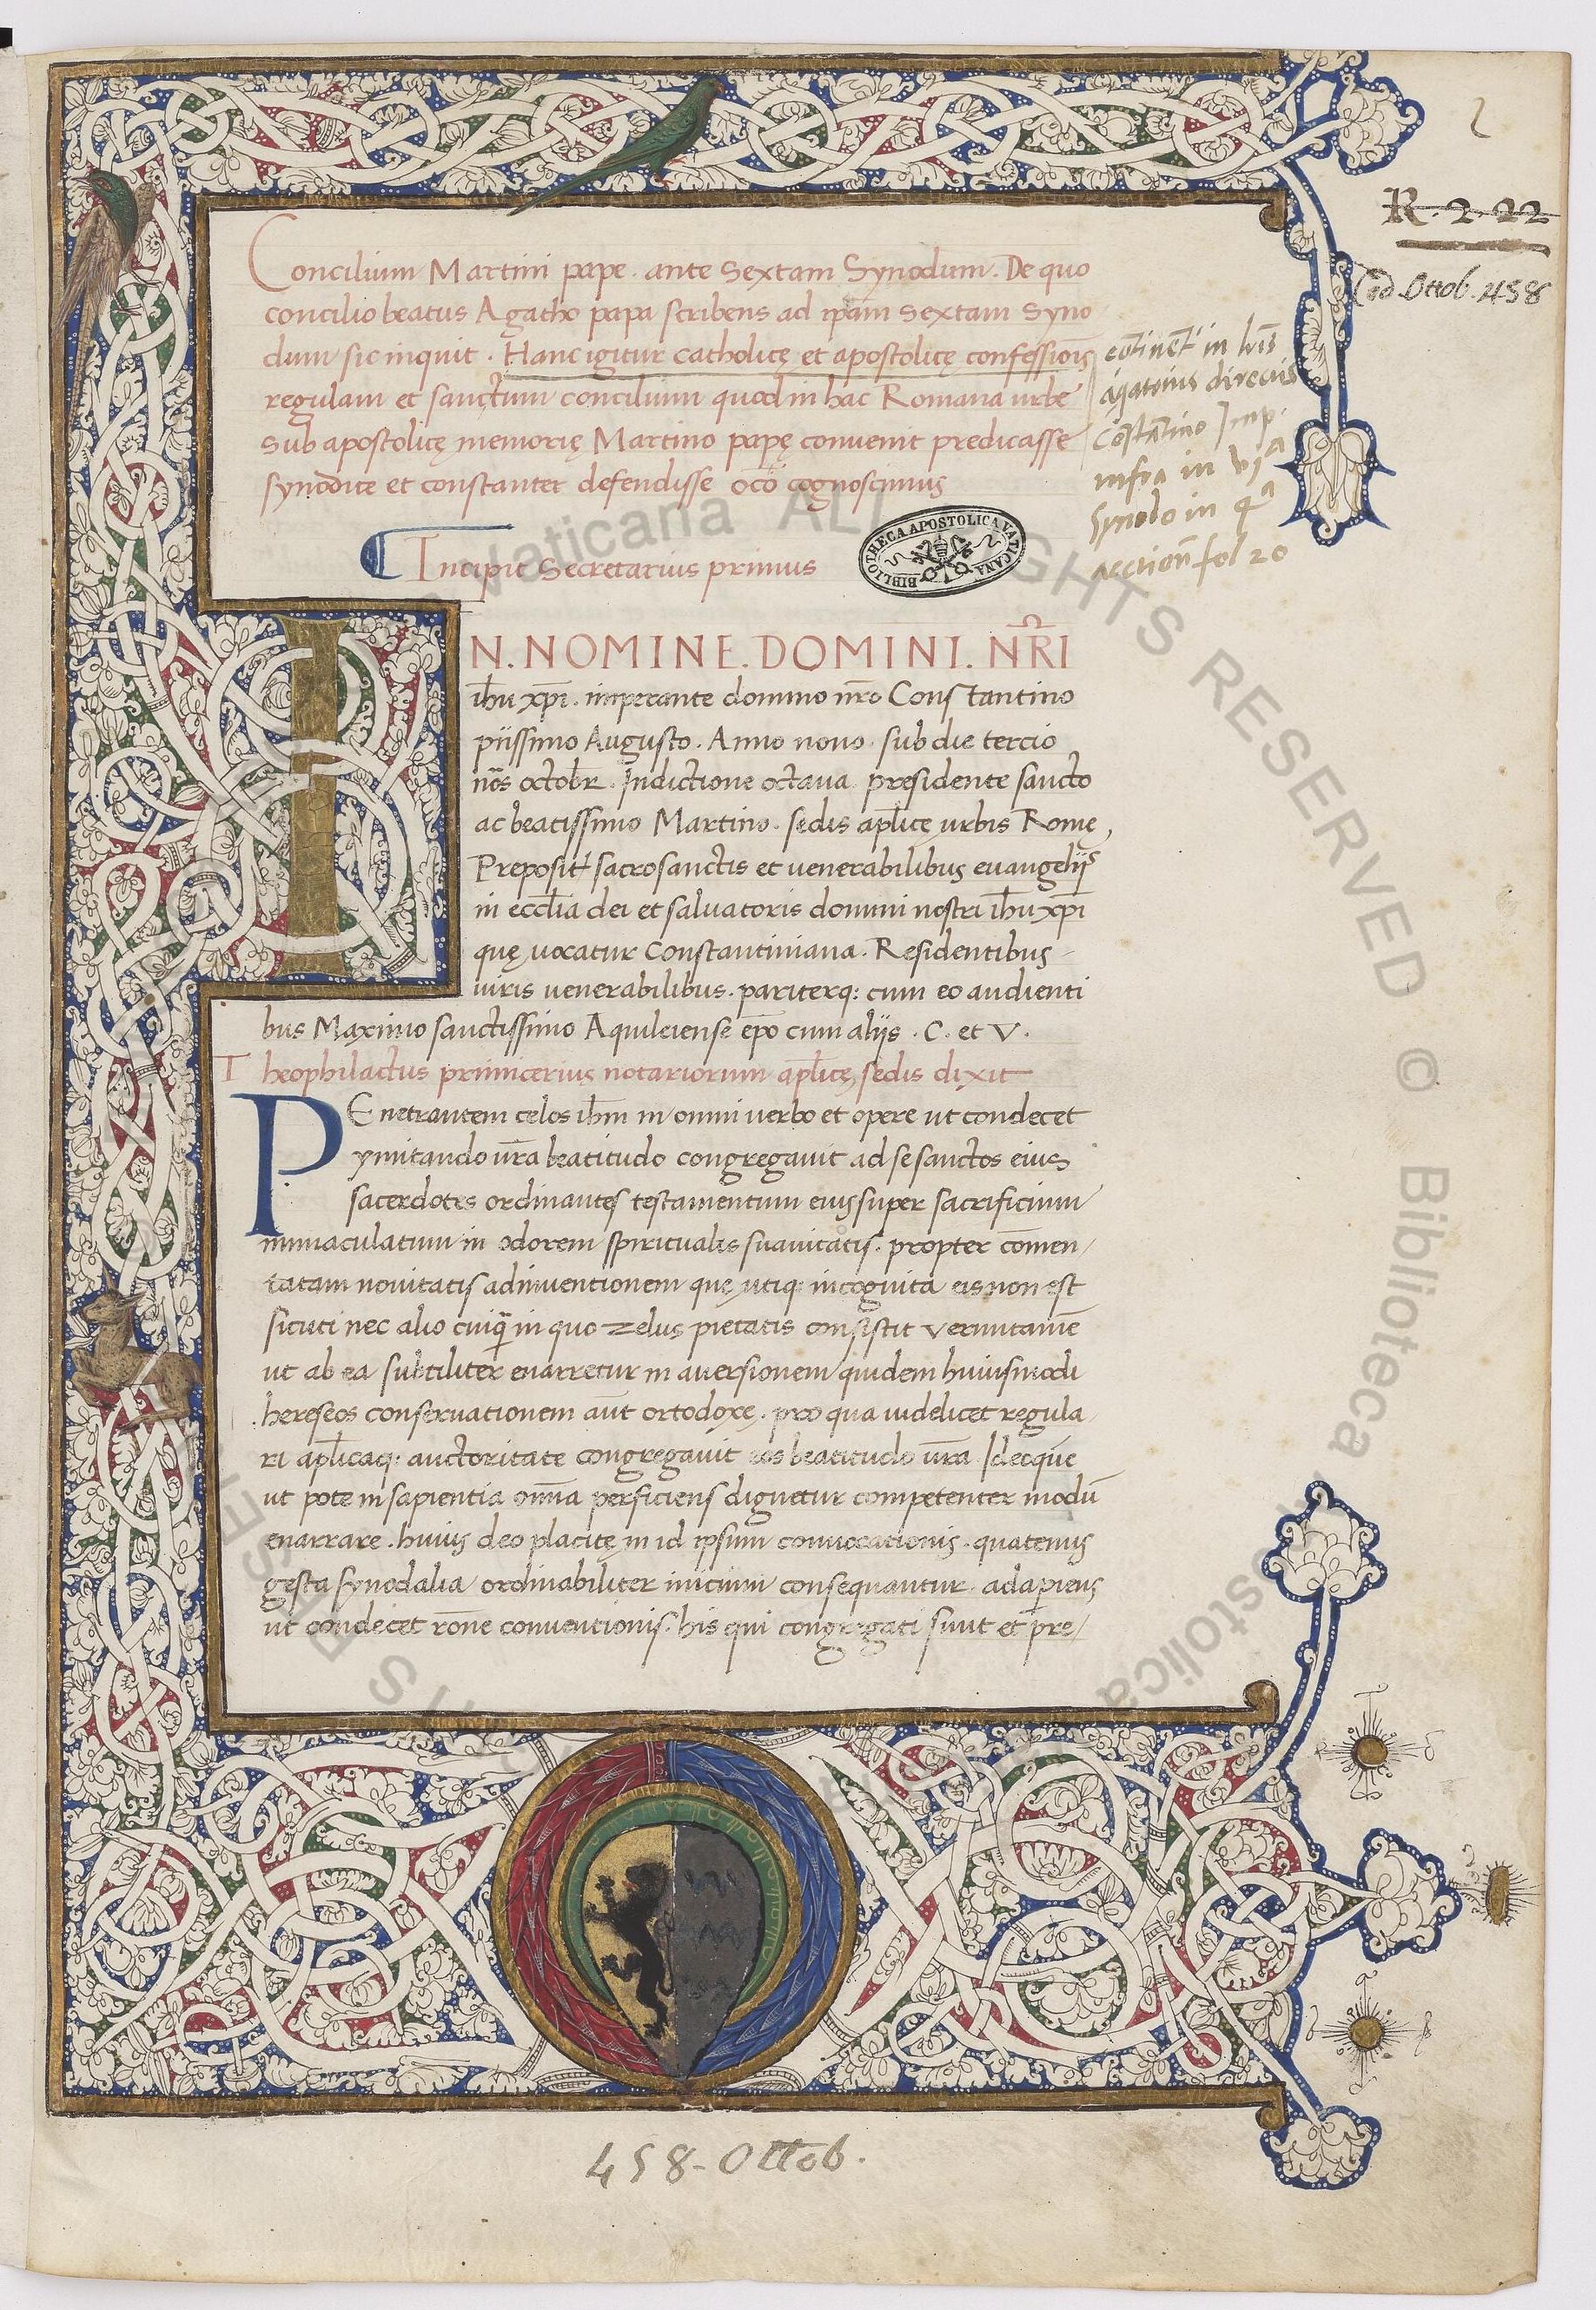 2
R. 2. 22
Cod Ottob. 458
Concilium Martini pape. ante Sextam Synodum. De quo
concilio beatus Agatho papa scribens ad ip̄am Sextam Syno
dum sic inquit. Hanc igitur catholicę et apostolicę confessiōis
regulam et sanctum concilium quod in hac Romana urbe
sub apostolicę memorię Martino papę convenit predicasse
synodice et constanter defendisse oc̄o cognoscimus
cōtinet in lr̄is
Agatonis directis
Cōstātino Imp.
infra in vjᵃ
Synodo in 4ᵃ
actiōn fol 20
Incipit Secretarius primus
BIBLIOTHECA APOSTOLICA VATICANA
IN. NOMINE. DOMINI. NR̄I
ih̄u xp̄i. imperante domino nr̄o Constantino
piissimo Augusto. Anno nono. sub die tercio
nōs octobr̄. Indictione octava. presidente sancto
ac beatissimo Martino. sedis apl̄icę urbis Romę,
Preposit̄ sacrosanctis et venerabilibus euangelijs
in eccl̄ia dei et saluatoris domini nostri ih̄u xp̄i
quę vocatur Constantiniana. Residentibus
uiris uenerabilibus. pariterq: cum eo audienti
bus Maximo sanctissimo Aquileiense ep̄o cum alijs. C. et V.
Theophilactus primicerius notariorum apl̄icę sedis dixit
PEnetrantem celos ih̄m in omni verbo et opere ut condecet
ymitando ur̄a beatitudo congregavit ad se sanctos eius
sacerdotes ordinantes testamentum eius super sacrificium
immaculatum in odorem spiritualis suavitatis. propter cōmen/
tatam novitatis adinventionem quę utiq: incognita eis non est
sicuti nec alio cuiq̄ in quo zelus pietatis consistit verumtamē
ut ab ea subtiliter enarretur in aversionem quidem huiusmodi
hereseos conservationem aut̄ ortodoxe. pro qua uidelicet regula
ri apl̄icaq: auctoritate congregavit eos beatitudo ur̄a Idecque
ut pote in sapientia om̄ia perficiens dignetur competenter modū
enarrare. huius deo placitę in id ipsum convocationis. quatenus
gesta synodalia ordinabiliter inicium consequantur. adapiens
ut condecet rōne conventionis. his qui congregati sunt et pre/
458-Ottob.